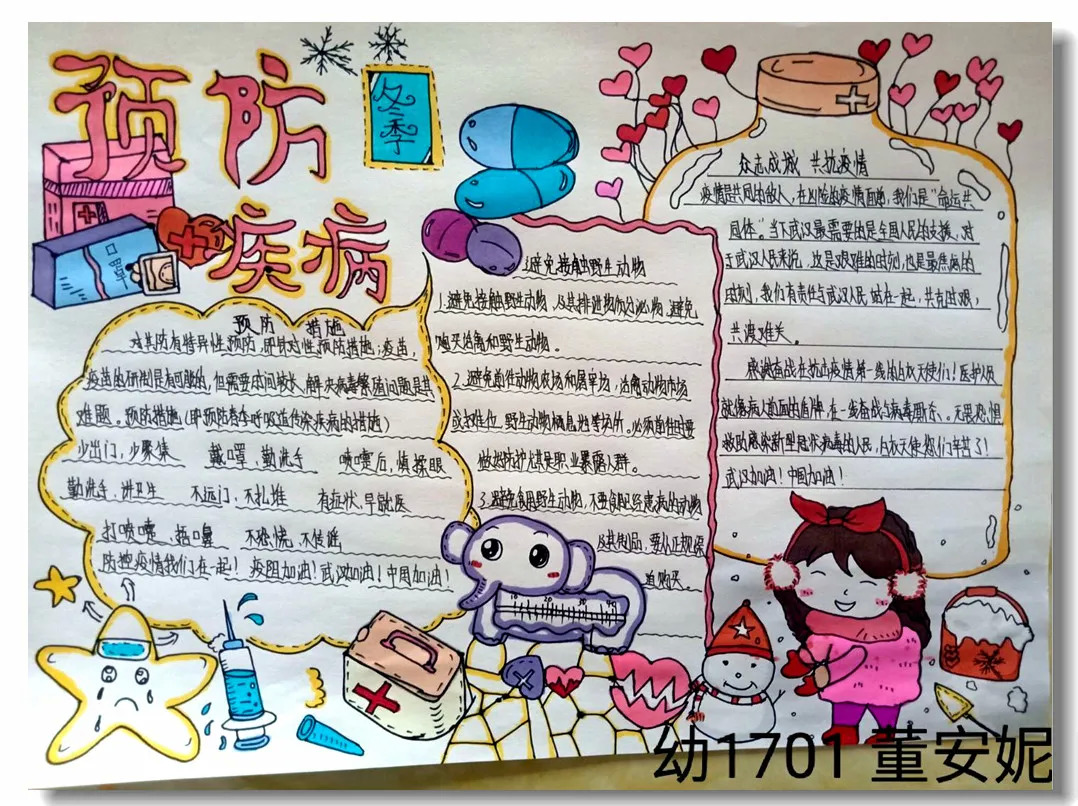 预防
冬季
疾病
口罩
预防 措施
对其防有特异性预防,即针对性预防措施:疫苗,
疫苗的研制是有可能的,但需要时间较长,解决病毒繁殖问题是其
难题。预防措施(即预防春季呼吸道传染疾病的措施)
少出门,少聚集 戴口罩,勤洗手 喷嚏后,慎揉眼
勤洗手,讲卫生 不远门,不扎堆 有症状,早就医
打喷嚏,捂口鼻 不恐慌,不传谣
防控疫情我们在一起!疫阻加油!武汉加油!中国加油!
避免接触野生动物
1.避免接触野生动物,及其排泄物和分泌物,避免
购买活禽和野生动物。
2.避免前往动物农场和屠宰场,活禽动物市场
或摊位,野生动物栖息地等场所。必须前往时要
做好防护尤其是职业暴露人群。
3.避免食用野生动物,不要食用已经患病的动物
及其制品,要从正规渠
道购买。
众志成城 共抗疫情
疫情是共同的敌人,在凶险的疫情面前,我们是“命运共
同体”。当下武汉最需要的是全国人民的支援,对
于武汉人民来说,这是艰难的时刻,也是最焦病的
时刻,我们有责任与武汉人民站在一起,共克时艰,
共渡难关。
感谢奋战在抗击疫情第一线的白衣天使们!医护人员
就像病人前面的盾牌,在一线奋战与病毒厮杀、。无畏恐惧
救助感染新型冠状病毒的人民,白衣天使您们辛苦了!
武汉加油!中国加油!
10 20 30 40
幼1701 董安妮